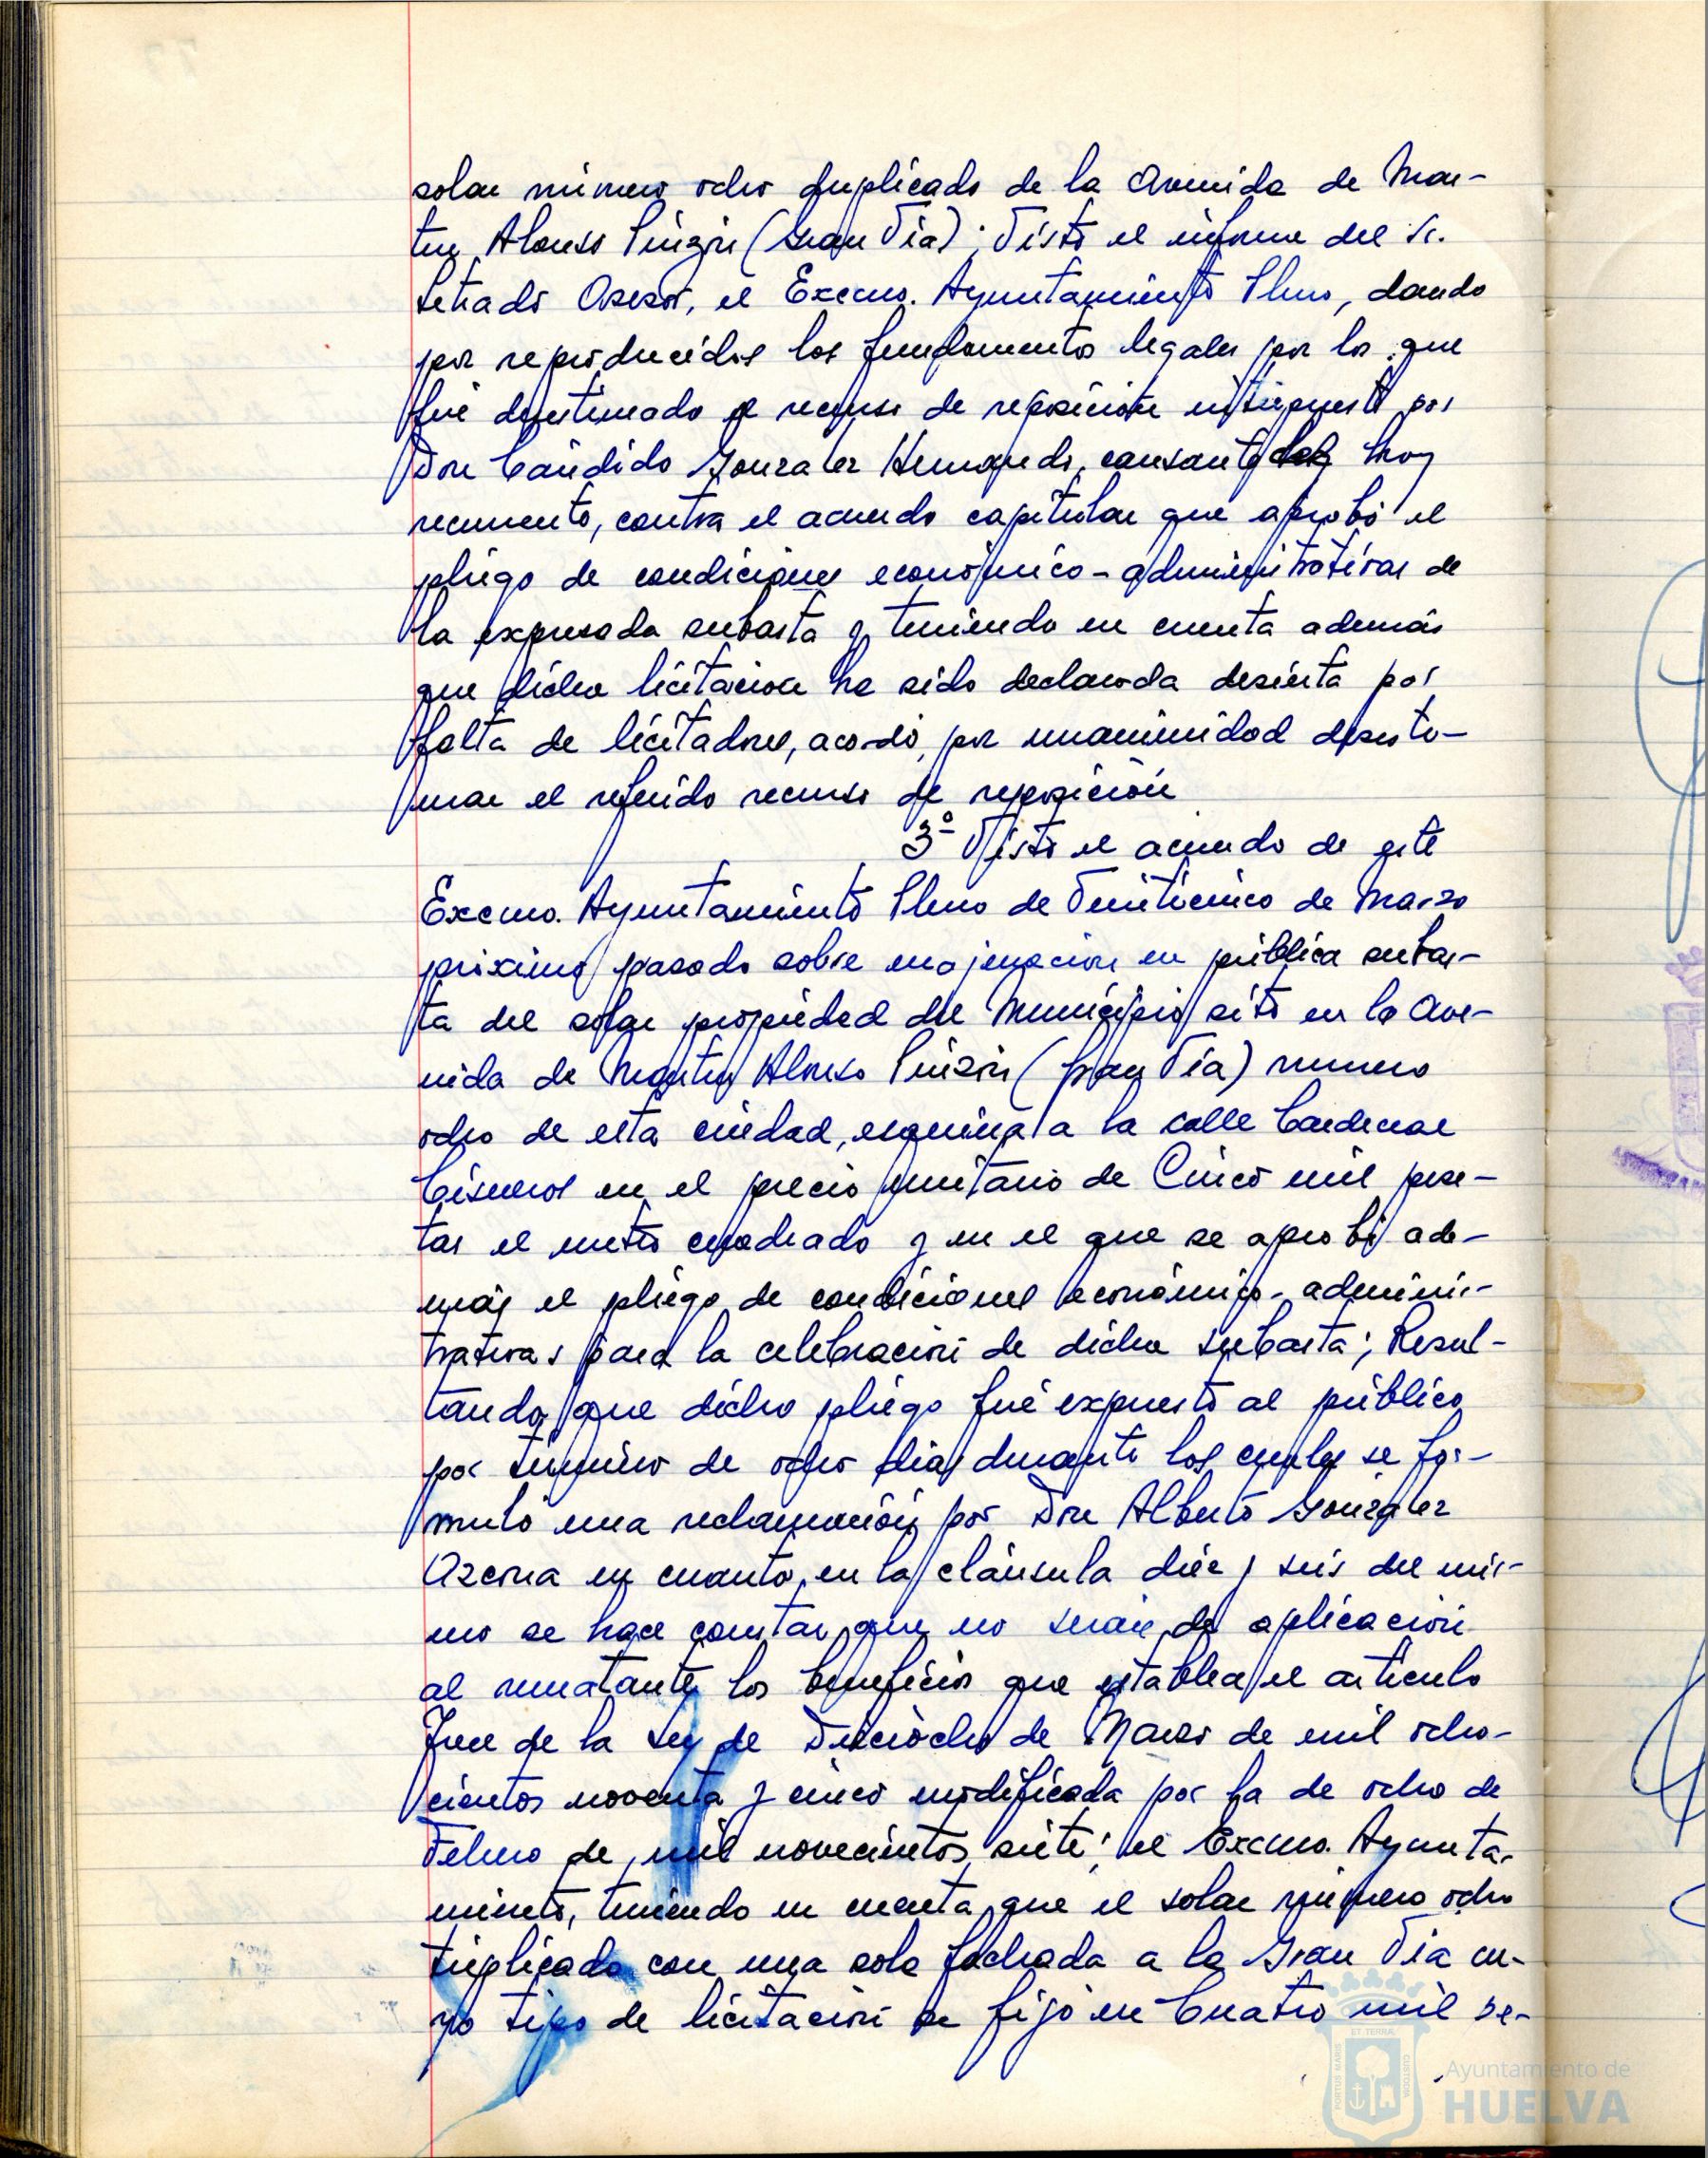 solar número ocho duplicado de la Avenida de Mar-
tin Alonso Pinzón (Gran Vía); Visto el informe del Sr.
Letrado Asesor, el Excmo. Ayuntamiento Pleno, dando
por reproducidos los fundamentos legales por los que
fué desestimado el recurso de reposición interpuesto por
Don Cándido Gonzalez Hernando, causante del hoy
recurrente, contra el acuerdo capitular que aprobó el
pliego de condiciones económico-administrativas de
la expresada subasta y teniendo en cuenta además
que dicha licitación ha sido declarada desierta por
falta de licitadores, acordó por unanimidad desesti-
mar el referido recurso de reposición
3º Visto el acuerdo de este
Excmo. Ayuntamiento Pleno de Veinticinco de Marzo
próximo pasado sobre enajenación en pública subas-
ta del solar propiedad del Municipio sito en la Ave-
nida de Martin Alonso Pinzón (Gran Vía) número
ocho de esta ciudad, esquina a la calle Cardenal
Cisneros en el precio unitario de Cinco mil pese-
tas el metro cuadrado y en el que se aprobó ade-
más el pliego de condiciones económico-adminis-
trativas para la celebración de dicha subasta; Resul-
tando que dicho pliego fué expuesto al público
por término de ocho días durante los cuales se for-
muló una reclamación por Don Alberto Gonzalez
Azcona en cuanto en la cláusula diez y seis del mis-
mo se hace constar que no serán de aplicación
al rematante los beneficios que establece el artículo
Trece de la Ley de Dieciocho de Marzo de mil ocho-
cientos noventa y cinco modificada por la de ocho de
Febrero de mil novecientos siete; el Excmo. Ayunta-
miento, teniendo en cuenta que el solar número ocho
triplicado con una sola fachada a la Gran Vía cu-
yo tipo de licitación se fijó en Cuatro mil se-
Ayuntamiento de
HUELVA